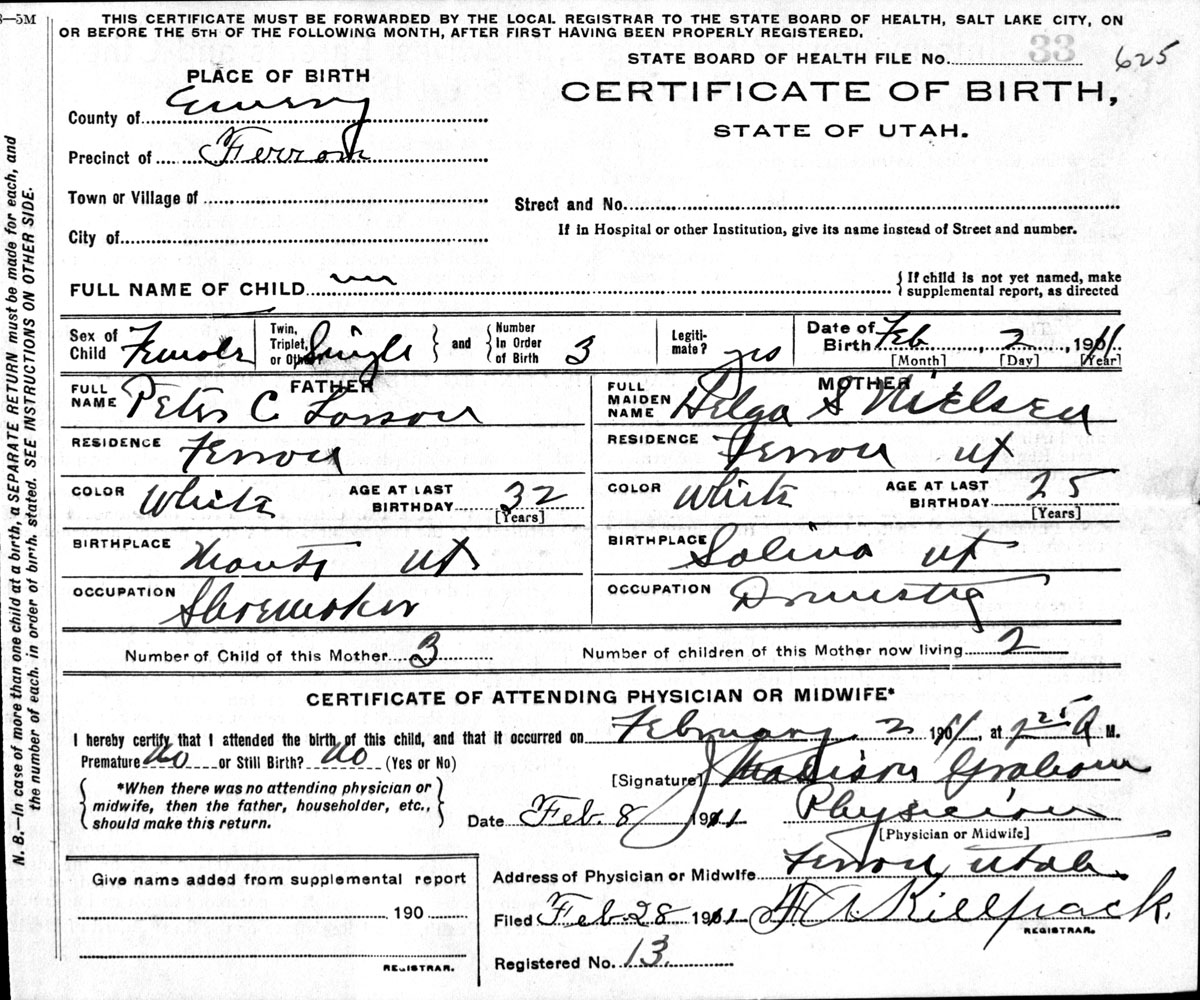 3—5M
THIS CERTIFICATE MUST BE FORWARDED BY THE LOCAL REGISTRAR TO THE STATE BOARD OF HEALTH, SALT LAKE CITY, ON
OR BEFORE THE 5TH OF THE FOLLOWING MONTH, AFTER FIRST HAVING BEEN PROPERLY REGISTERED.
STATE BOARD OF HEALTH FILE No. 33 625
PLACE OF BIRTH
CERTIFICATE OF BIRTH,
STATE OF UTAH.
County of Emery
Precinct of Ferron
Town or Village of
Street and No.
City of
If in Hospital or other Institution, give its name instead of Street and number.
FULL NAME OF CHILD
{If child is not yet named, make
supplemental report, as directed
Sex of Child Female
Twin, Triplet, or Other Single } and { Number In Order of Birth 3
Legiti-mate? yes
Date of Birth Feb, 2, 1911
[Month] [Day] [Year]
FATHER
FULL NAME Peter C Larson
RESIDENCE Ferron
COLOR White AGE AT LAST BIRTHDAY 32
[Years]
BIRTHPLACE Manti Ut
OCCUPATION Shoemaker
MOTHER
FULL MAIDEN NAME Helga S Nielsen
RESIDENCE Ferron Ut
COLOR White AGE AT LAST BIRTHDAY 25
[Years]
BIRTHPLACE Salina Ut
OCCUPATION Domestic
Number of Child of this Mother 3 Number of children of this Mother now living 2
CERTIFICATE OF ATTENDING PHYSICIAN OR MIDWIFE*
I hereby certify that I attended the birth of this child, and that it occurred on February 2 1911, at A M.
Premature No or Still Birth? No (Yes or No)
[Signature] J Madison Graham
{*When there was no attending physician or
midwife, then the father, householder, etc.,
should make this return.}
Date Feb. 8 1911 Physician
[Physician or Midwife]
Address of Physician or Midwife Ferron Utah
Give name added from supplemental report
190
REGISTRAR.
Filed Feb 28 1911 Killpack.
REGISTRAR.
Registered No. 13
N. B.—In case of more than one child at a birth, a SEPARATE RETURN must be made for each, and
the number of each, in order of birth, stated. SEE INSTRUCTIONS ON OTHER SIDE.